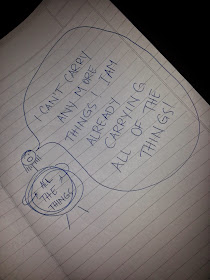 I CAN'T CARRY
ANY MORE
THINGS I AM
ALREADY
CARRYING
ALL OF THE
THINGS!
ALL
THE
THINGS